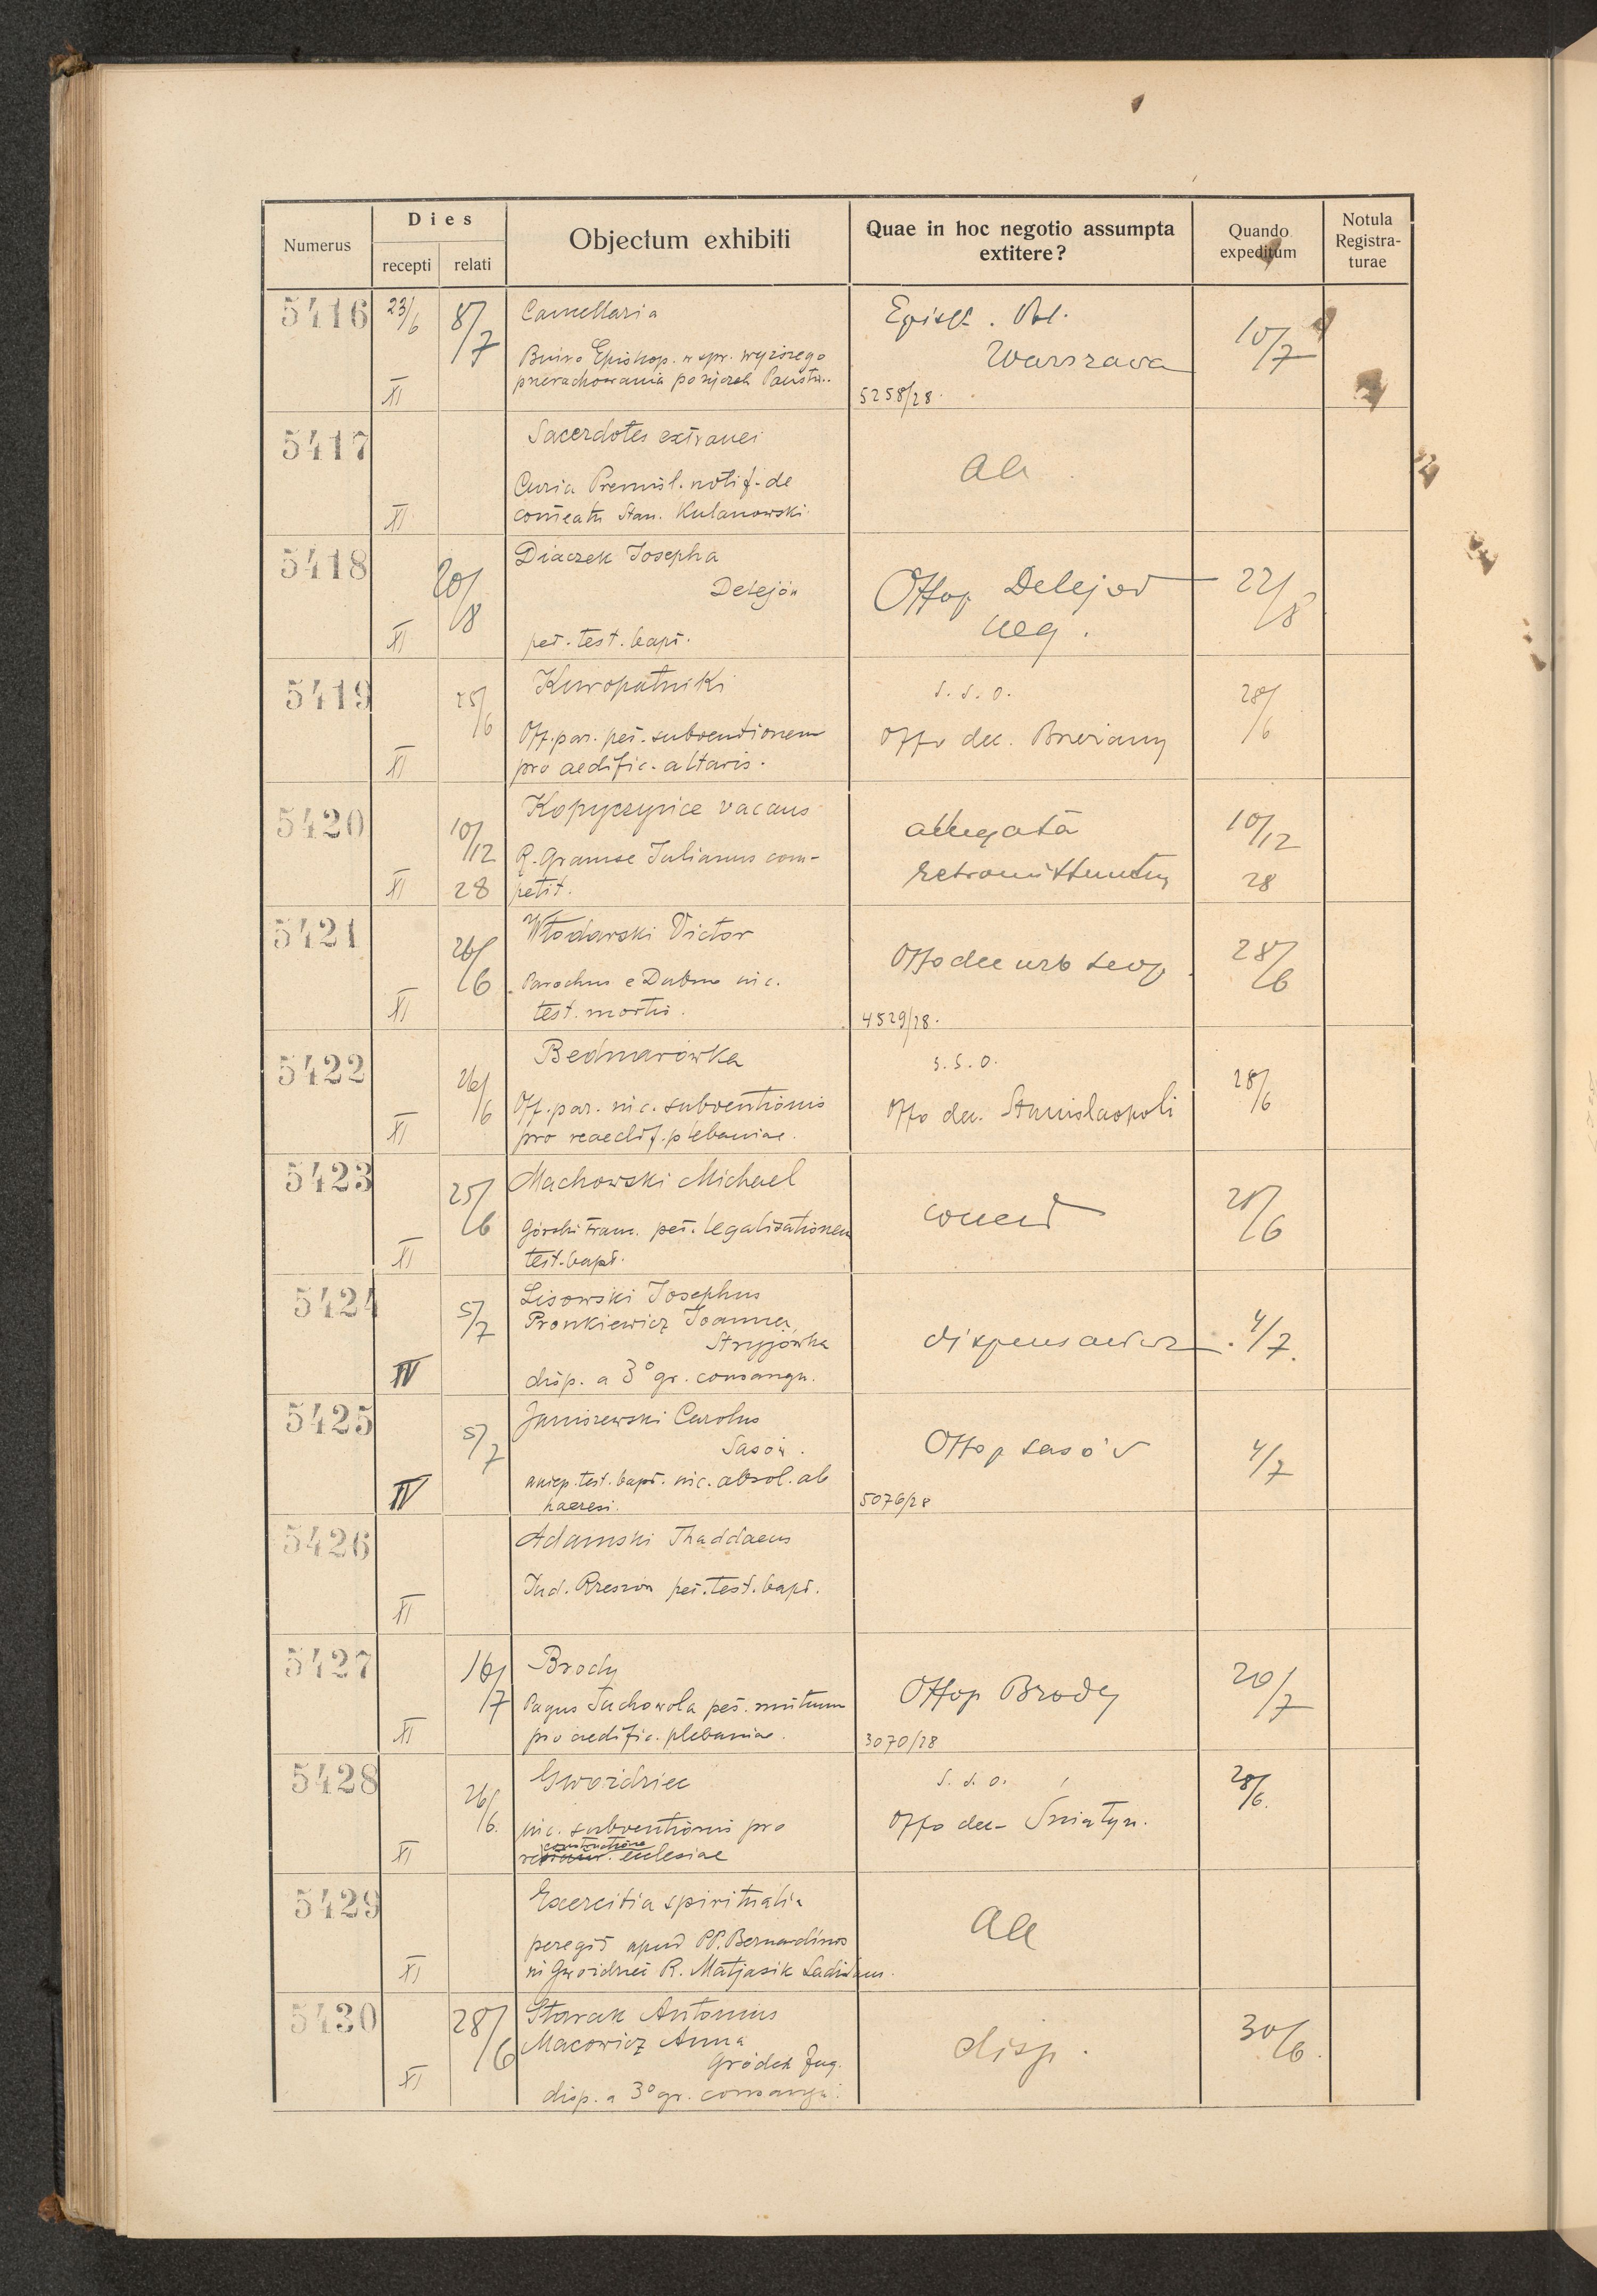 Numerus
Dies
recepti
relati
Objectum exhibiti
Quae in hoc negotio assumpta
extitere?
Quando
expeditum
Notula
Registra-
turae
5416 23/6 XI 8/7
Cancellaria
Biuro Episkop. w spr. wyższego
przerachowania pożyczek Państw.
Episk. Pol.
Warszawa
5258/28.
10/7
5417 XI
Sacerdotes extranei
Curia Premisl. notif. de
comeatu Stan. Kulanowski.
aa
5418 XI 20/8
Diaczek Josepha
Delejów
pet. test. bapt.
Offop Delejów
neg.
22/8
5419 XI 25/6
Kuropatniki
Off. par. pet. subventionem
pro aedific. altaris.
s. s. o.
Offo dec. Brzeżany
28/6
5420 XI 10/12 28
Kopyczyńce vacans
R. Gramse Julianus com-
petit.
allegata
retromittuntur
10/12 28
5421 XI 26/6
Włodarski Victor
Parochus e Dubno nic.
test. mortis.
Offo dec urb Leop.
4529/28.
28/6
5422 XI 26/6
Bednarówka
Off. par. nic. subventionis
pro reaedif. plebaniae.
s. s. o.
Offo dec. Stanislaopoli
28/6
5423 XI 25/6
Machowski Michael
Górski Franc. pet. legalisationem
test. bapt.
28/6
5424 IV 5/7
Lisowski Josephus
Pronkiewicz Joanna
Stryjówka
disp. a 3° gr. consangu.
4/7.
5425 IV 5/7
Janiszewski Carolus
Sasów.
test. bapt. nic. absol. ab
haeresi.
Offop Sasów
5076/28
4/7
5426 XI
Adamski Thaddaeus
Jud. Rzeszów pet. test. bapt.
5427 XI 16/7
Brody
Pagus Suchowola pet. mutuum
pro aedific. plebaniae.
Offop Brody
3070/28
20/7
5428 XI 26/6.
Gwoździec
nic. subventionis pro
constructione
ecclesiae
s. s. o.
Offo dec. Śniatyn.
28/6.
5429 XI
Exercitia spiritualia
peregit apud PP. Bernardinos
in Gwoździec R. Matjasik Ladislaus.
aa
5430 XI 28/6
Starak Antonius
Macowicz Anna
Gródek Jag.
disp. a 3° gr. consangu.
disp.
30/6.